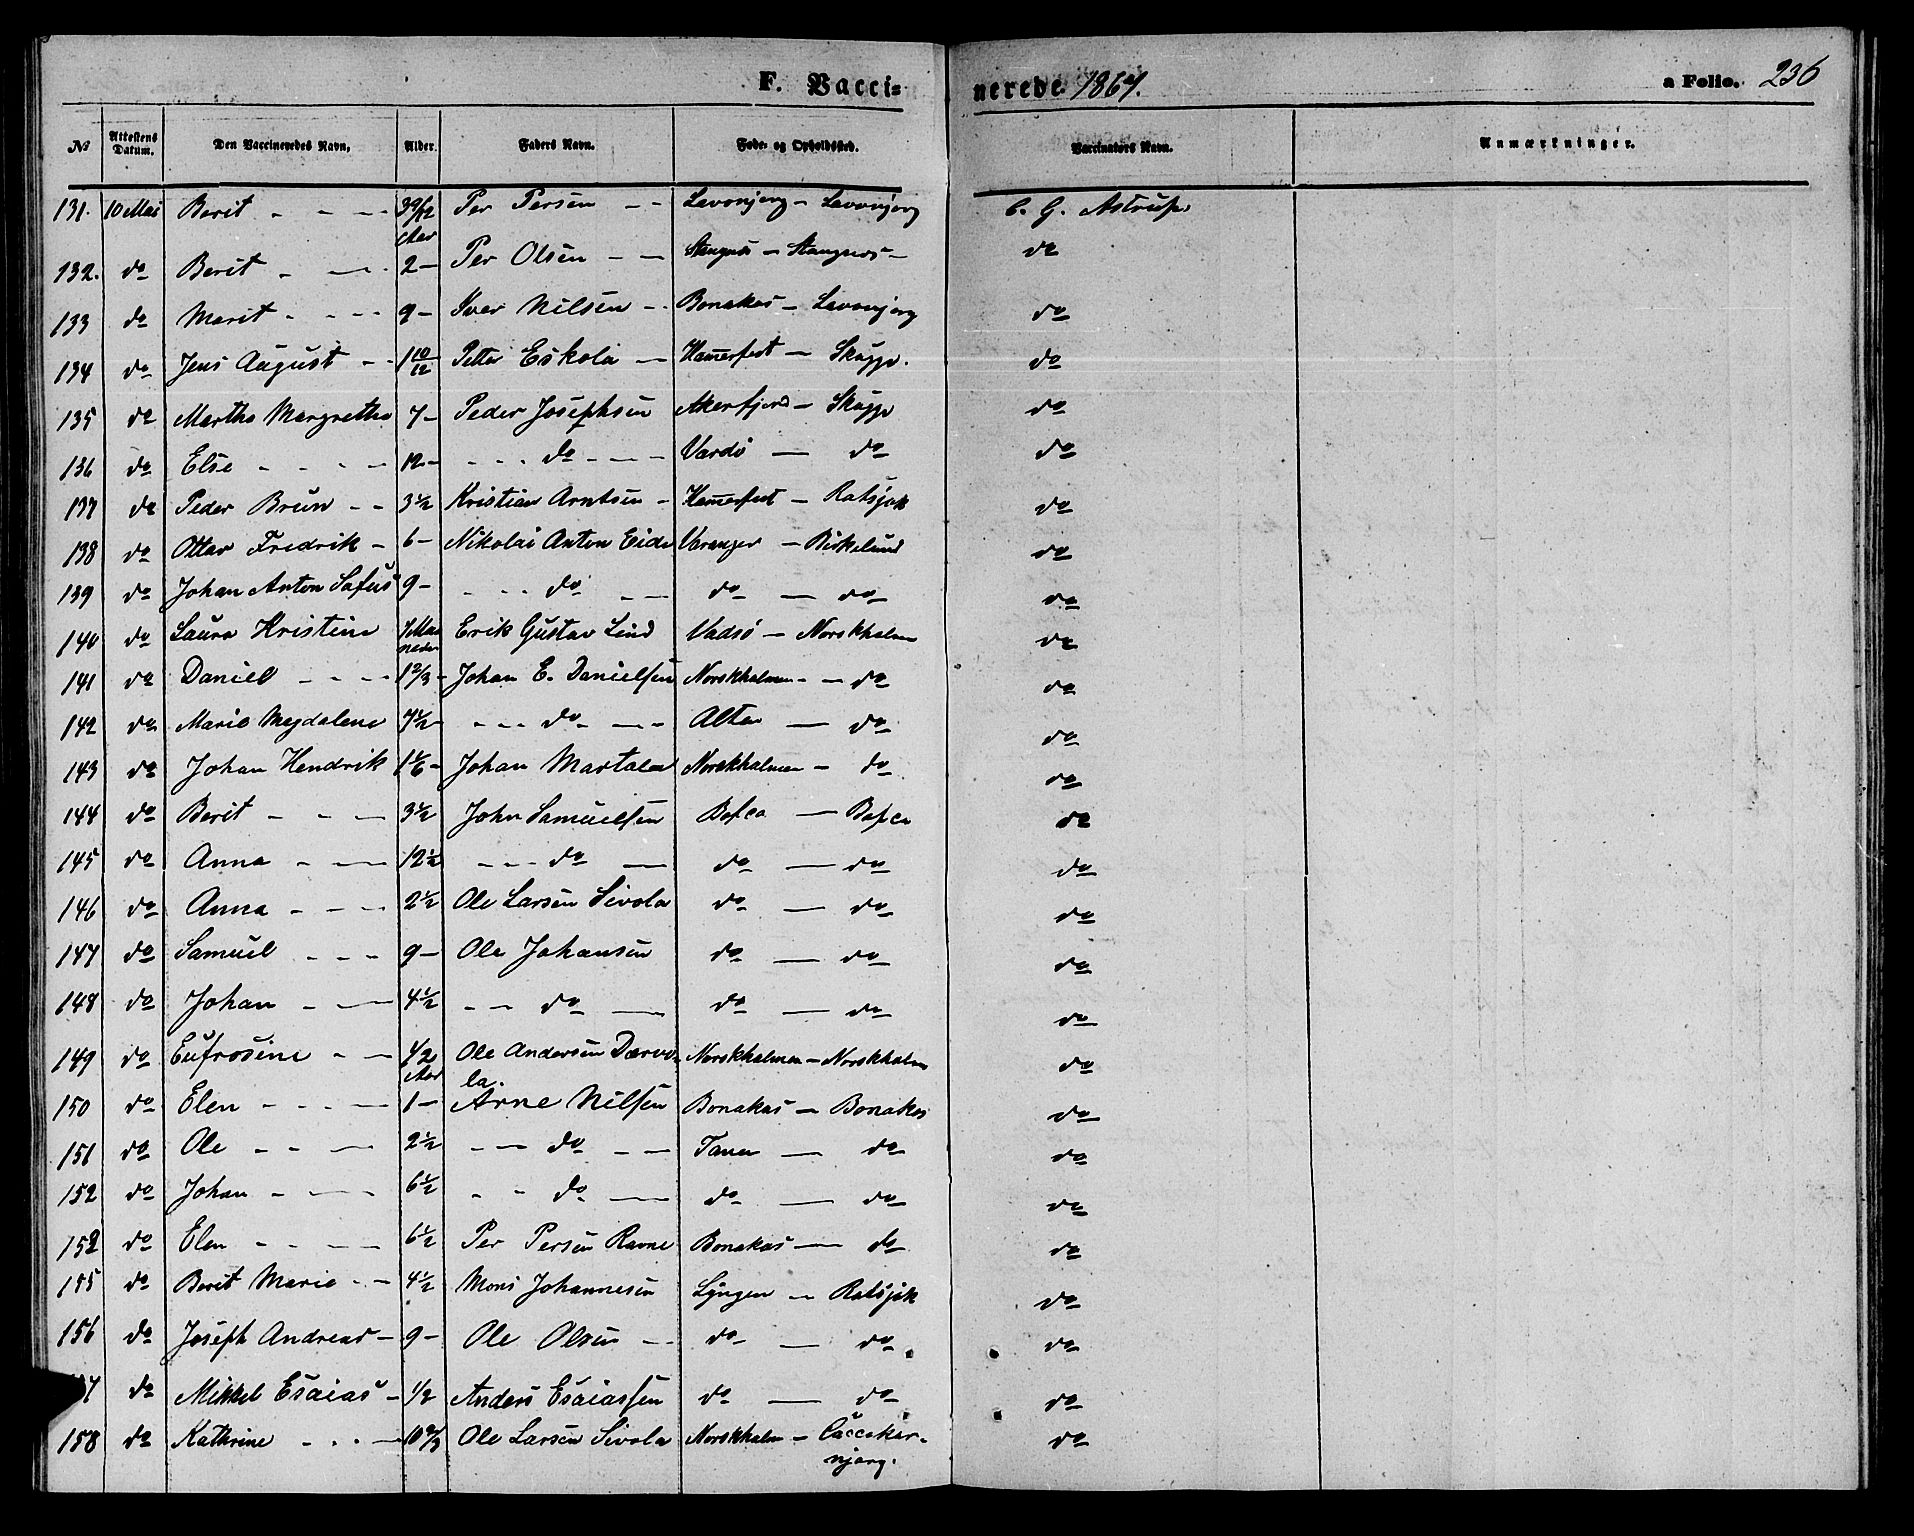 F. Vacci=
nerede 1867.
a Folio. 236
No Attestens Datum. Den Vaccineredes Navn, Alder. Faders Navn. Føde- og Opholdssted. Vaccinators Navn. Anmærkninger.
131. 10 Mai Berit - - - - 3 9/12 Aar Per Persen - - Lavonjorg - Lavonjorg C. G. Astrup
132. do Berit - - - 2 - Per Olsen - - Stangnæs - Stangnæs - do
133 do Marit - - - - 9 - Iver Nilsen - - Bonakas - Lavonjorg do
134 do Jens August - - 1 10/12 Petter Eskola - Hamerfest - Skuggo. do
135 do Martha Margretha 7 - Peder Josephsen Akerfjord - Skuggo do
136 do Else - - - - 12 - - - - do - - - Vardö - do do
137 do Peder Brun - - 3 1/2 Kristian Arntsen - Hamerfest - Ratsjok do
138 do Ottar Fredrik - 6 - Nikolai Anton Eide Varanger - Birkelund do
139 do Johan Anton Sofus 9 - - - - do - - - do - do do
140 do Laura Kristine 7 Maaneder Erik Gustav Lind Vadsö - Norskholm do
141 do Daniel - - - - 1 2/3 - Johan E. Danielsen Norskholmen - - do do
142 do Marie Magdalene 7 1/2 - - - - do - - - Alten - do do
143 do Johan Hendrik 1 1/6 - Johan Martala Norskholmen - do do
144 do Berit - - - 3 1/2 John Samuelsen Bofca - Bofca do
145 do Anna - - - 12 1/2 - - - do - do - do do
146 do Anna - - - 2 1/2 Ole Larsen Sivola do - do do
147 do Samuel - - - 9 - Ole Johansen do - do do
148 do Johan - - - 4 1/2 - - do - do - do do
149 do Eufrosine - - 1/2 Aar Ole Andersen Dærvo-
la. Norskholmen - Norskholm do
150 do Elen - - - - 1 - Arne Nilsen Bonakas - Bonakas do
151 do Ole - - - 2 1/2 - - do - - Tanen - do do
152 do Johan - - - 6 1/2 - - do - do - do do
152 do Elen - - - - 6 1/2 Per Persen Ravne Bonakas - do do
155 do Berit Marie - - 4 1/2 Mons Johannesen Lyngen - Ratsjok do
156 do Joseph Andreas - 9 - Ole Olsen - - do - do do
7 do Mikkel Esaias - 1/2 Anders Esaiassen do - do do
158 do Kathrine - - - - 10 2/3 Ole Larsen Sivola Norskholm - Caccekar-
njarg. do